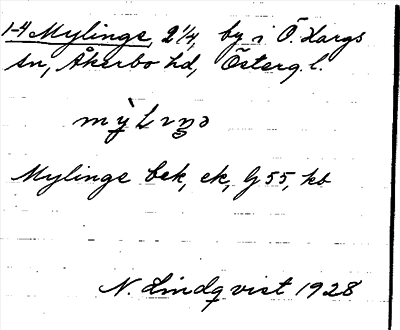 1-4 Mylinge, 2 1/4, by i Ö. Hargs
sn, Åkerbo hd, Österg. l.
mỳLıŋə
Mylinge bek, ek, G 55, kb
N. Lindqvist 1928